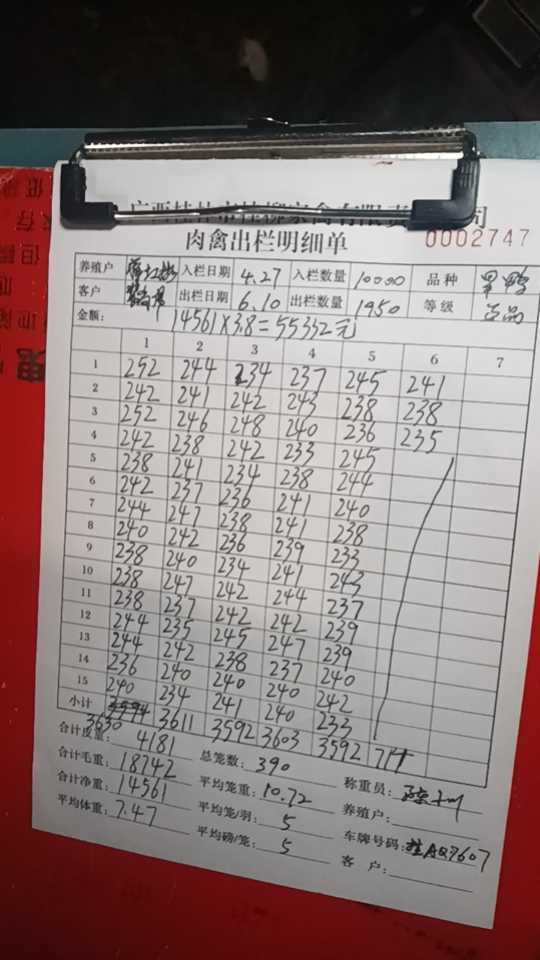 肉禽出栏明细单
0002747
养殖户 入栏日期 4.27 入栏数量 10000 品种 黑鸭
客户 出栏日期 6.10 出栏数量 1950 等级
金额: 14561×3.8=55332元
1 2 3 4 5 6 7
1 252 244 234 237 245 241
2 242 241 242 243 238 238
3 252 246 248 240 236 235
4 242 238 242 233 245
5 238 241 234 238 244
6 242 237 236 241 240
7 244 247 238 241 238
8 240 242 236 239 233
9 238 240 234 241 243
10 238 247 242 244 237
11 238 237 242 242 239
12 244 235 245 247 239
13 244 242 238 237 240
14 236 240 240 240 242
15 240 234 241 240 233
小计 3594 3611 3592 3603 3592 714
3630
合计皮重: 4181 总笼数: 390 称重员:
合计毛重: 18742 平均笼重: 10.72 养殖户:
合计净重: 14561 平均笼/羽: 5 车牌号码: 桂AQ7607
平均体重: 7.47 平均磅/笼: 5 客户: